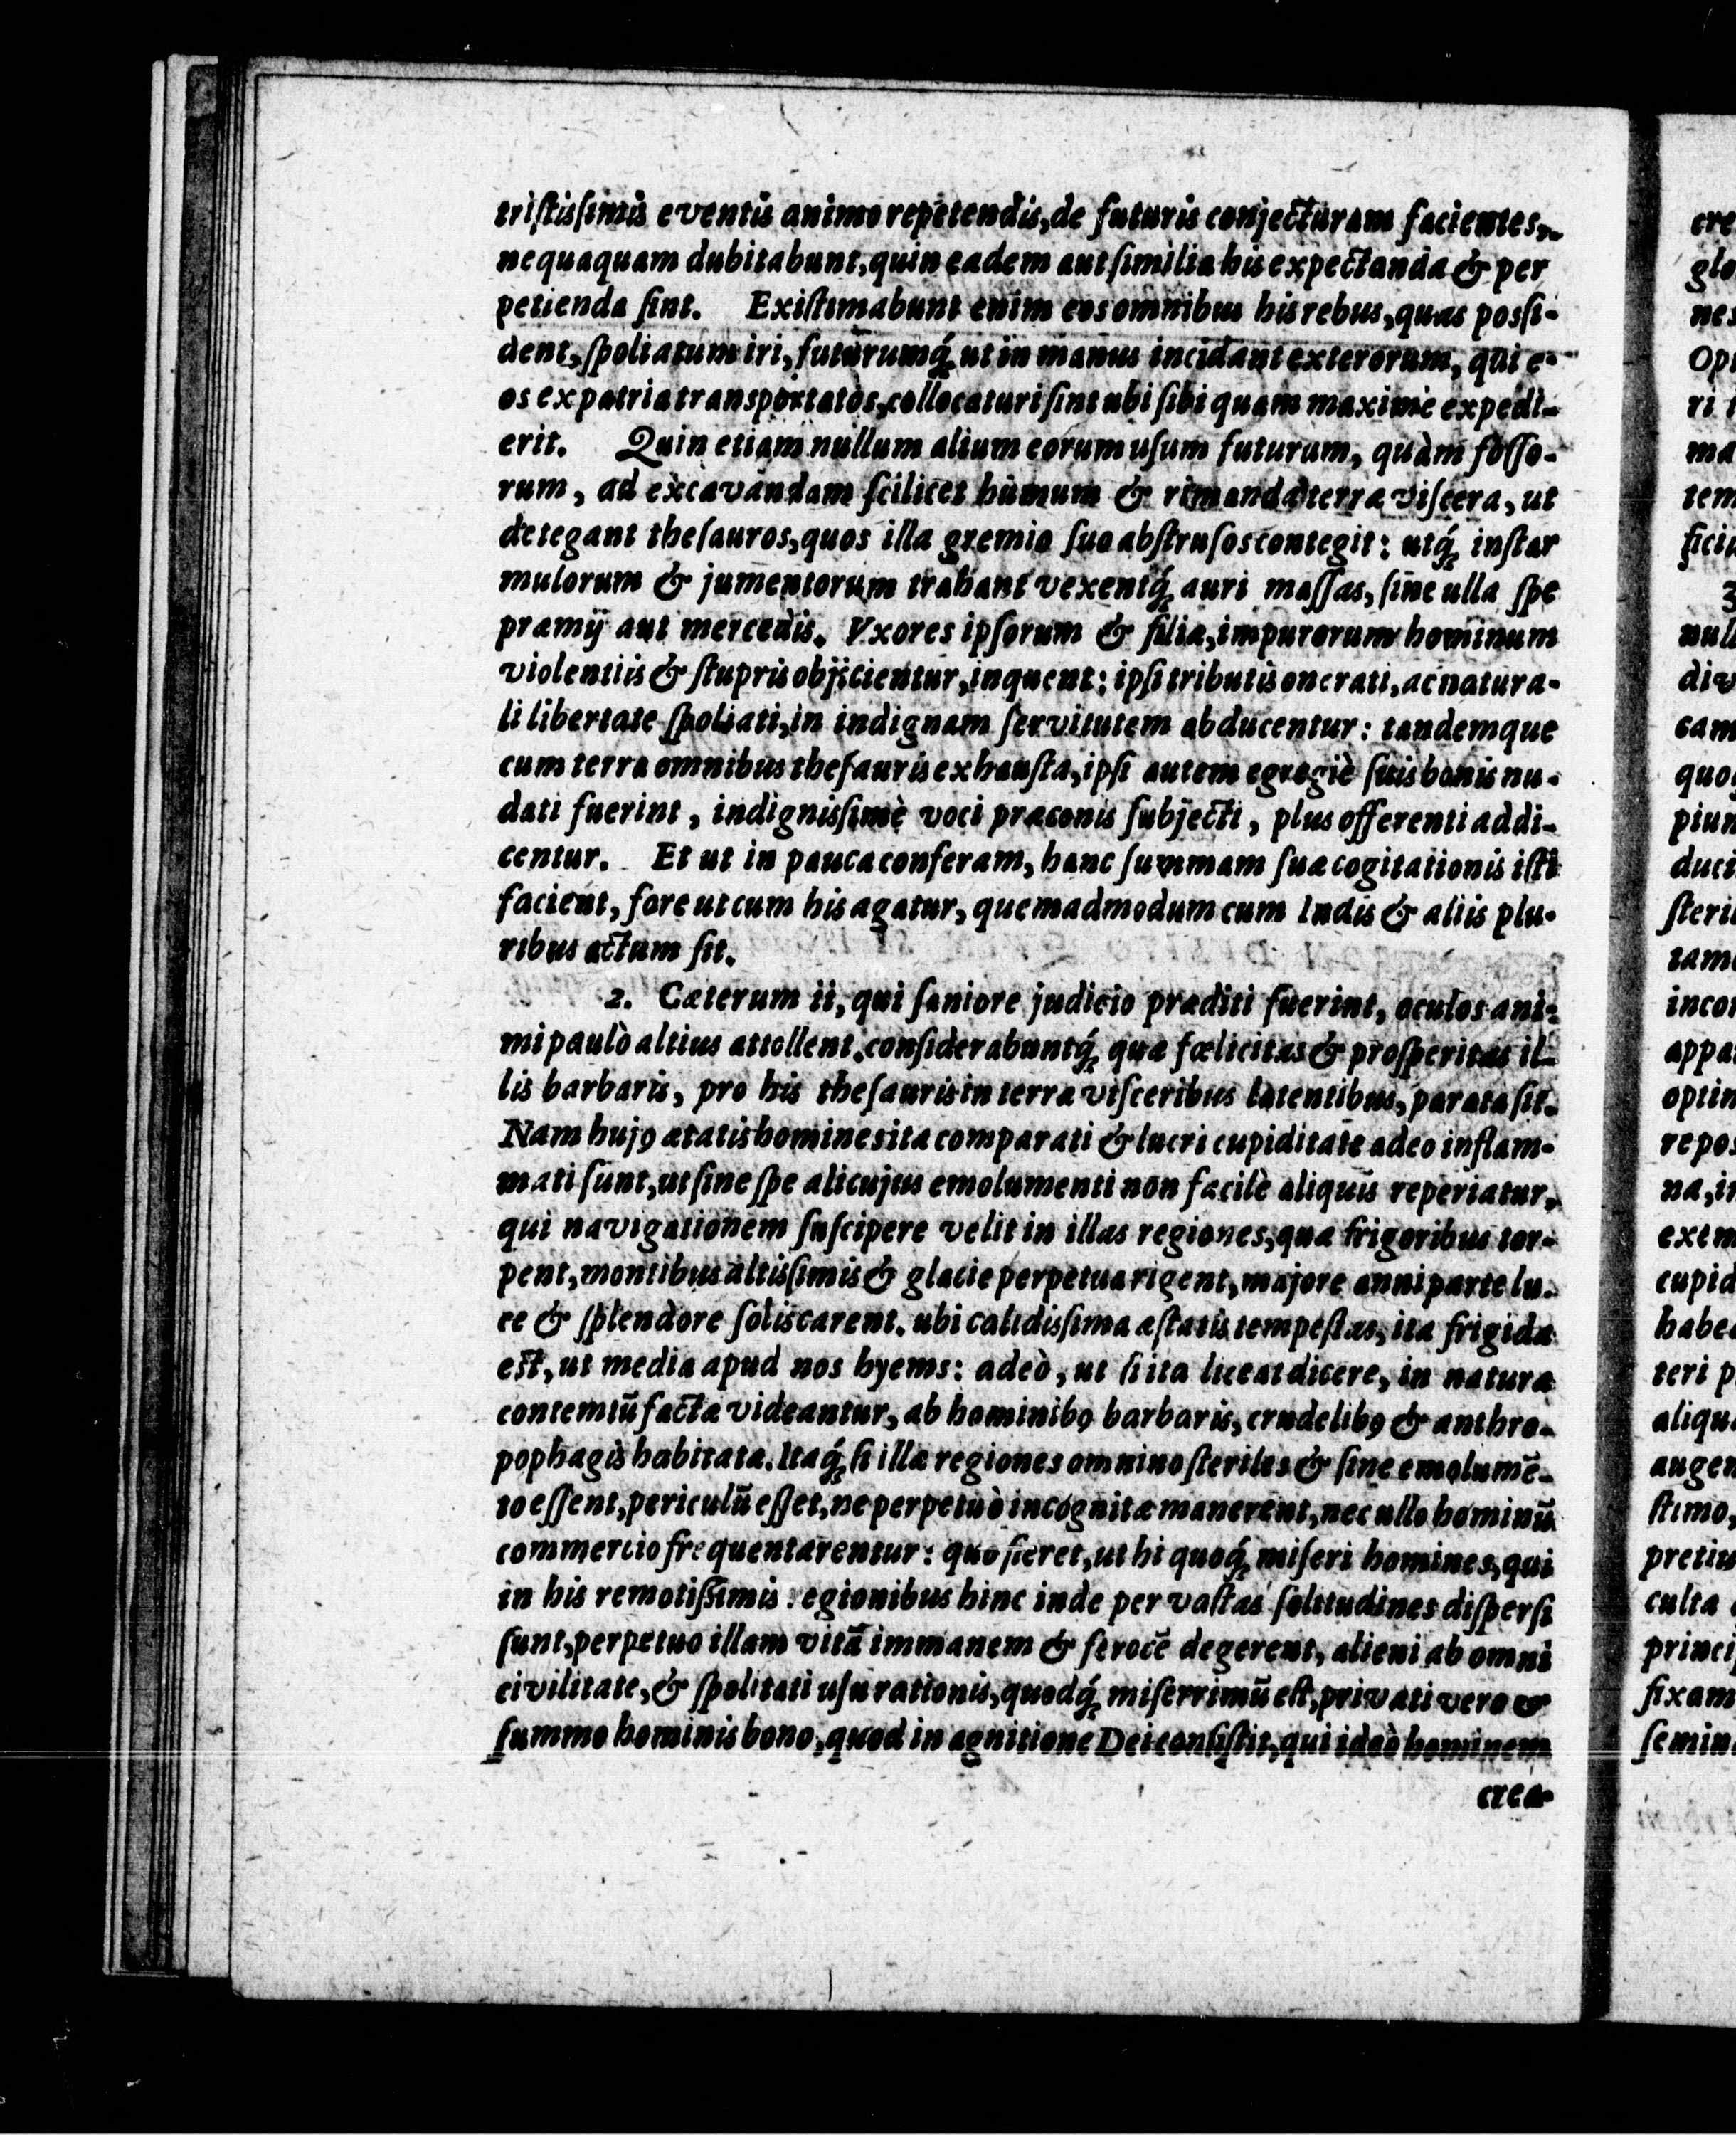 triſtisſimis eventis animo repetendis, de futuris conjecturam facientes,
nequaquam dubitabunt, quin eadem aut ſimilia his expectanda & per
petienda ſint. Exiſtimabunt enim eos omnibus his rebus, quas posſi-
dent, ſpoliatum iri, futurumq́; ut in manus incidant exterorum, qui e-
os ex patria transportatos, collocaturi ſint ubi ſibi quam maximè expedi-
erit. Quin etiam nullum alium eorum uſum futurum, quàm foſſo-
rum, ad excavandam ſcilicet humum & rimanda terræ viſcera, ut
detegant theſauros, quos illa gremio ſuo abſtruſos contegit: utq́; inſtar
mulorum & jumentorum trahant vexentq́; auri maſſas, ſine ulla ſpe
præmij aut mercedis. Vxores ipſorum & filiæ, impurorum hominum
violentiis & ſtupris objicientur, inquent: ipſi tributis onerati, ac natura-
li libertate ſpoliati, in indignam ſervitutem abducentur: tandemque
cum terra omnibus theſauris exhauſta, ipſi autem egregiè ſuis bonis nu-
dati fuerint, indignisſimè voci præconis ſubjecti, plus offerenti addi-
centur. Et ut in pauca conferam, hanc ſummam ſuæ cogitationis iſti
facient, fore ut cum his agatur, quemadmodum cum Indis & aliis plu-
ribus actum ſit.
2. Cæterum ii, qui ſaniore judicio præditi fuerint, oculos ani-
mi paulò altius attollent, conſiderabuntq́; quæ fœlicitas & proſperitas il-
lis barbaris, pro his theſauris in terræ viſceribus latentibus, parata ſit.
Nam hujꝰ ætatis homines ita comparati & lucri cupiditate adeo inflam-
mati ſunt, ut ſine ſpe alicujus emolumenti non facilè aliquis reperiatur,
qui navigationem ſuſcipere velit in illas regiones, quæ frigoribus tor-
pent, montibus altisſimis & glacie perpetua rigent, majore anni parte lu-
ce & ſplendore ſolis carent. ubi calidisſima æſtatis tempeſtas, ita frigida
eſt, ut media apud nos hyems: adeò, ut ſi ita liceat dicere, in naturæ
contemtū facta videantur, ab hominibꝰ barbaris, crudelibꝰ & anthro-
pophagis habitata. Itaq́; ſi illæ regiones omnino ſteriles & ſine emolumē-
to eſſent, periculū eſſet, ne perpetuò incognitæ manerent, nec ullo hominū
commercio frequentarentur: quo fieret, ut hi quoq́; miſeri homines, qui
in his remotiſſimis regionibus hinc inde per vaſtas ſolitudines diſperſi
ſunt, perpetuo illam vitā immanem & ferocē degerent, alieni ab omni
civilitate, & ſpolitati uſu rationis, quodq́; miſerrimū eſt, privati vero &
ſummo hominis bono, quod in agnitione Dei conſiſtit, qui ideò hominem
crea-